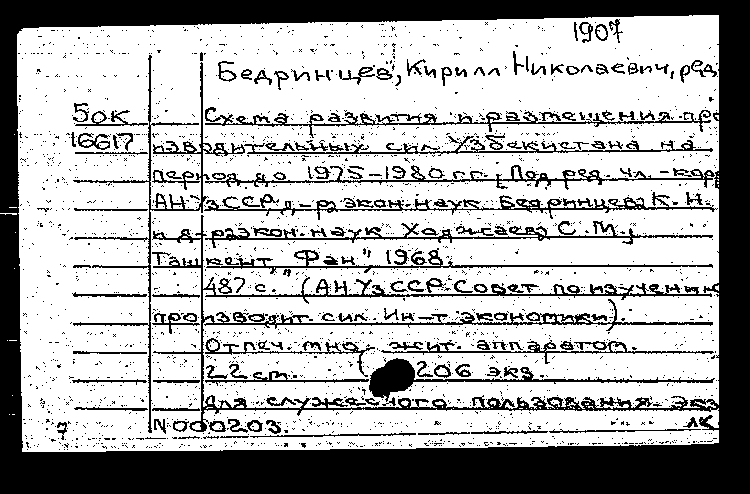 1907
Бедринцев, Кирилл Николаевич, ред
50К Схема развития и размещения про
16617 изводительных сил Узбекистана на
период до 1975-1980 г.г. [Под ред. чл.-корр
АН УзССР, д-ра экон. наук Бедринцева К. Н.
и д-ра экон. наук Хаджаева С. М.]
Ташкент, "Фан", 1968.
487 с. (АН УзССР. Совет по изучению
производит. сил. Ин-т экономики).
Отпеч. множит. аппаратом.
22 cm. 206 экз.
Для служебного пользования. Экз
N 000203. ЛК
7